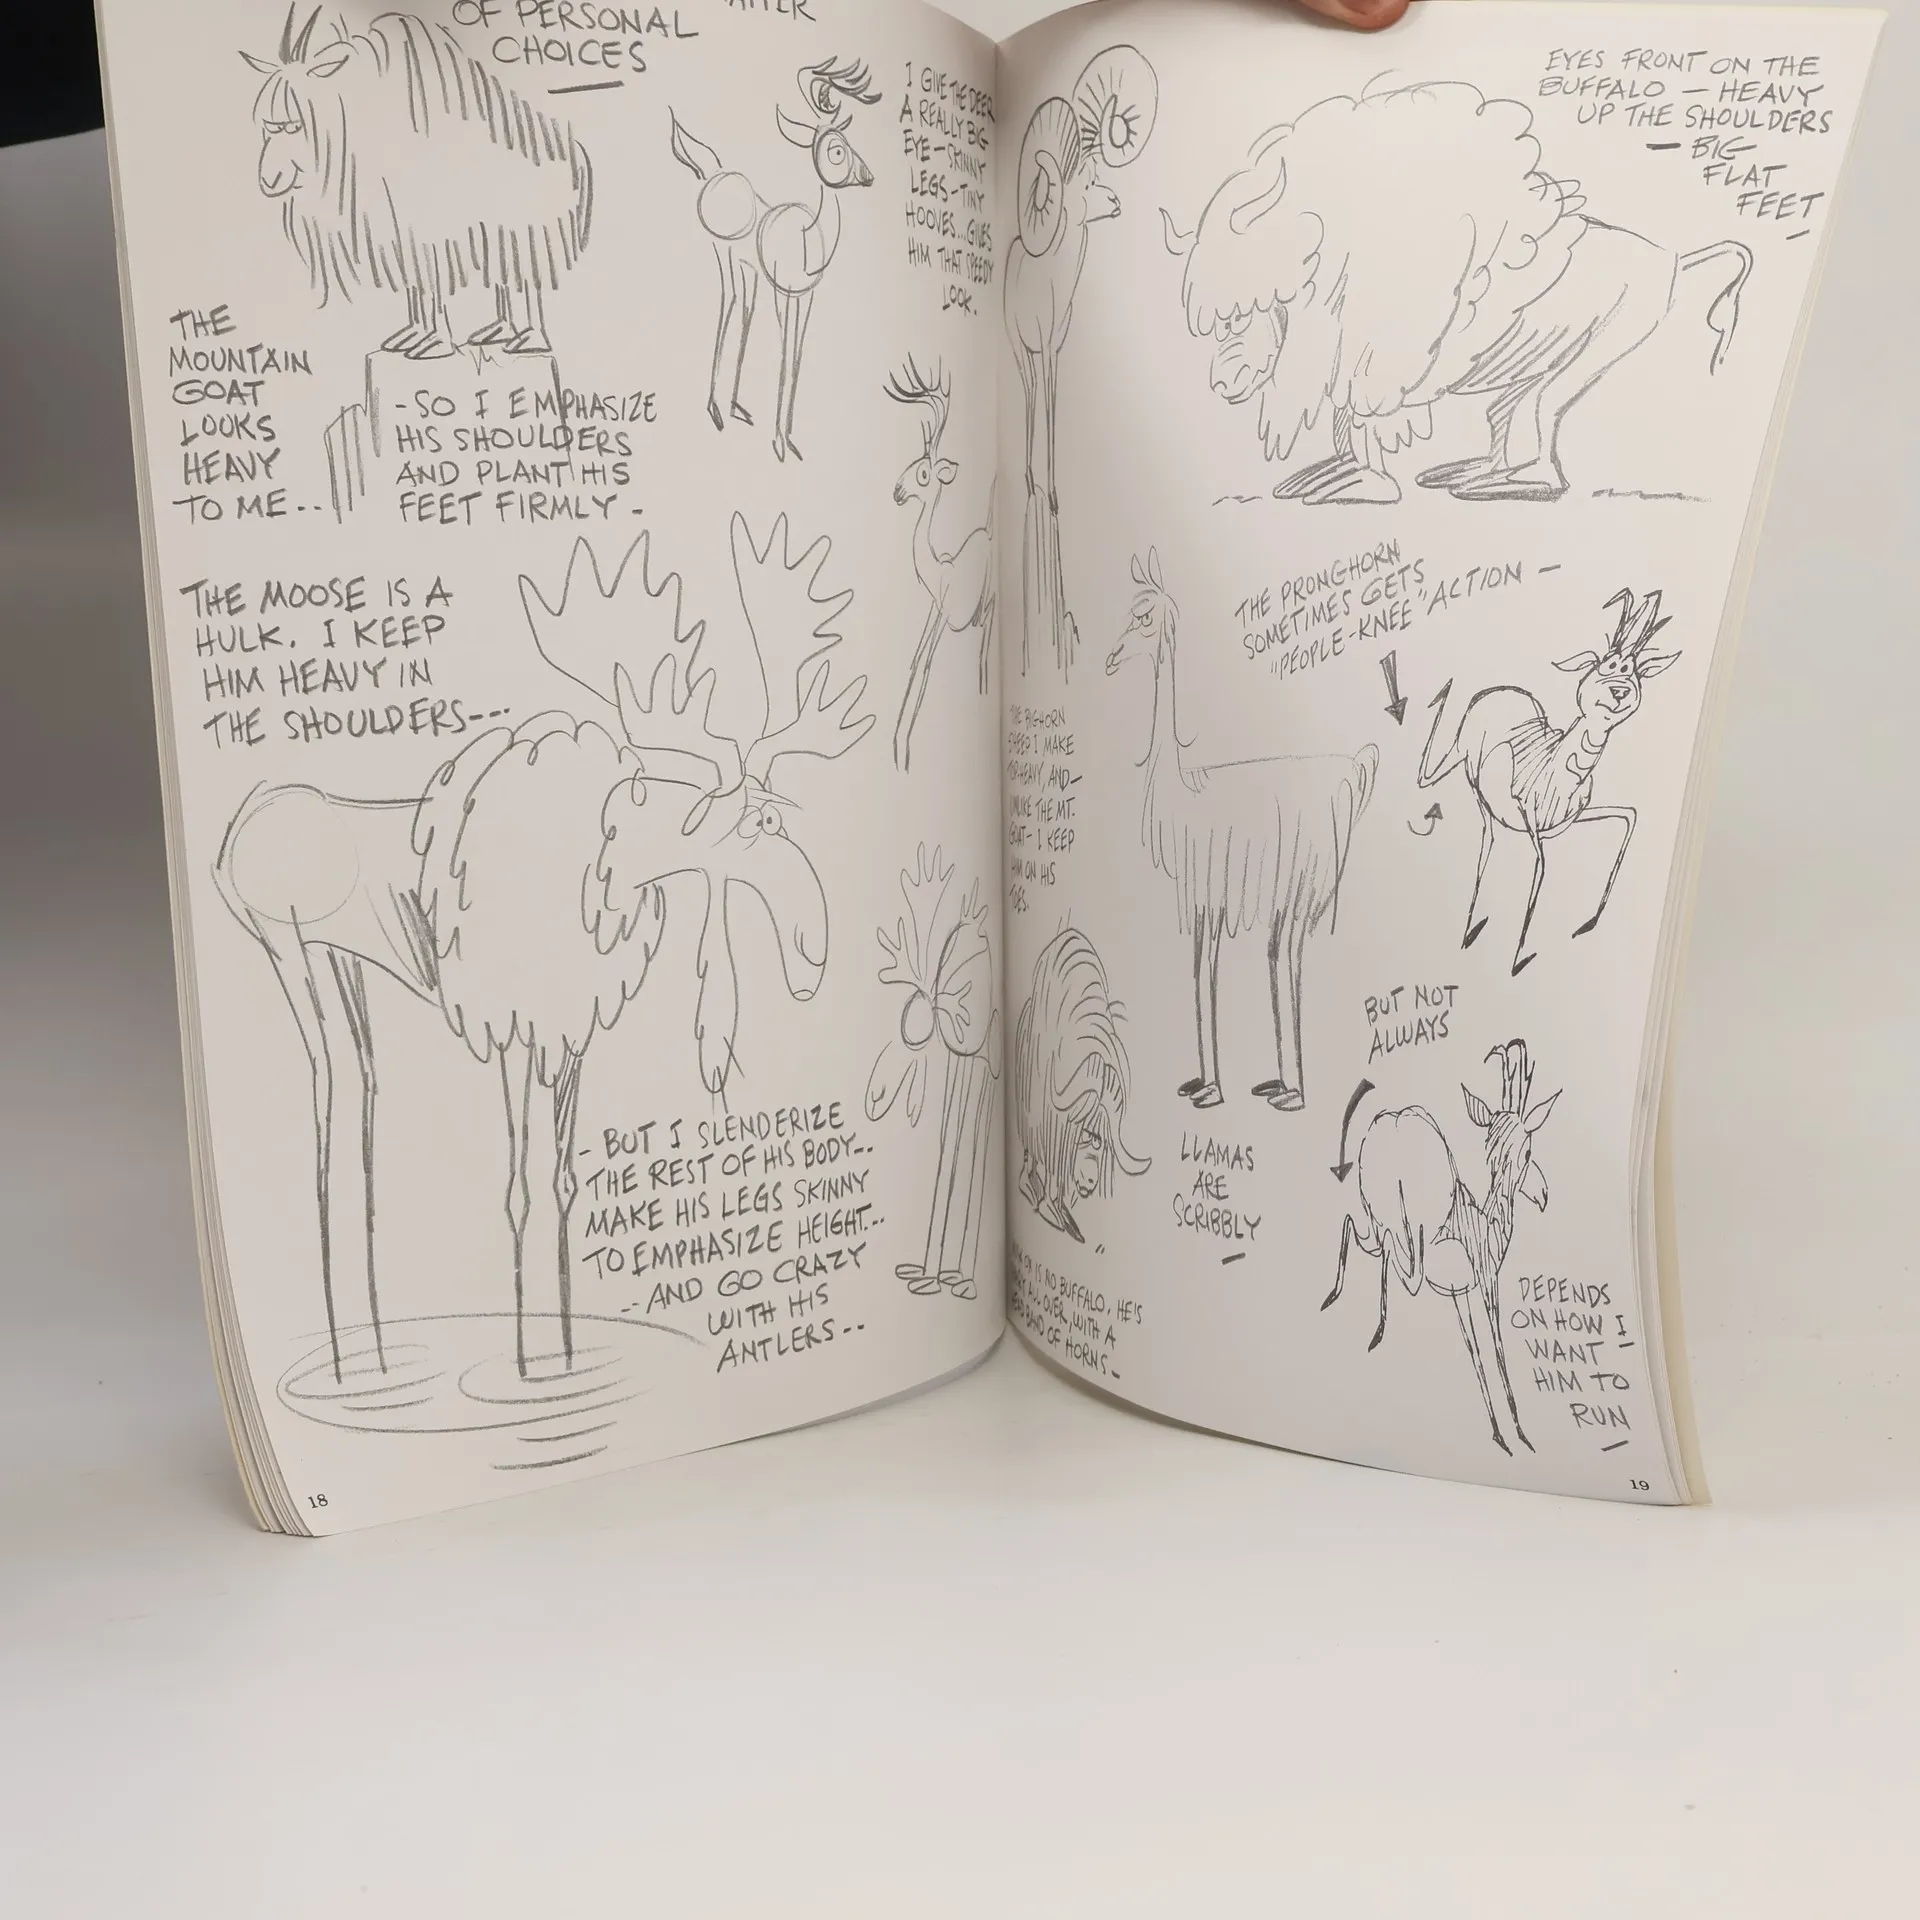 OF PERSONAL
CHOICES
I GIVE THE DEER
A REALLY BIG
EYE - SKINNY
LEGS - TINY
HOOVES... GIVES
HIM THAT SPEEDY
LOOK.
THE
MOUNTAIN
GOAT
LOOKS
HEAVY
TO ME..
- SO I EMPHASIZE
HIS SHOULDERS
AND PLANT HIS
FEET FIRMLY -
THE MOOSE IS A
HULK. I KEEP
HIM HEAVY IN
THE SHOULDERS---
- BUT I SLENDERIZE
THE REST OF HIS BODY--
MAKE HIS LEGS SKINNY
TO EMPHASIZE HEIGHT--
-- AND GO CRAZY
WITH HIS
ANTLERS--
18
EYES FRONT ON THE
BUFFALO - HEAVY
UP THE SHOULDERS
- BIG
FLAT
FEET
THE PRONGHORN
SOMETIMES GETS
"PEOPLE-KNEE" ACTION -
THE BIGHORN
SHEEP I MAKE
HEAVY, AND -
UNLIKE THE MT.
GOAT - I KEEP
HIM ON HIS
TOES.
BUT NOT
ALWAYS
LLAMAS
ARE
SCRIBBLY
OX IS NO BUFFALO. HE'S
ALL OVER, WITH A
BAND OF HORNS -
DEPENDS
ON HOW I
WANT
HIM TO
RUN
19